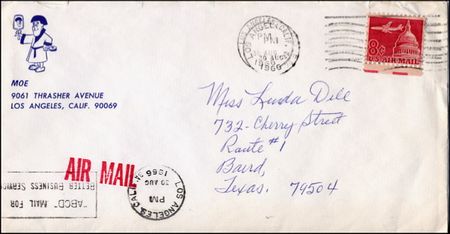 LOS ANGELES, CALIF.
PM
1966
8¢
U.S. AIR MAIL
MOE
9061 THRASHER AVENUE
LOS ANGELES, CALIF. 90069
Miss Linda Dill
732 - Cherry Street
Route #1
Baird,
Texas. 79504
AIR MAIL
"ABCD" MAIL FOR
BETTER BUSINESS SERVICE
LOS ANGELES, CALIF.
PM
30 AUG
1966